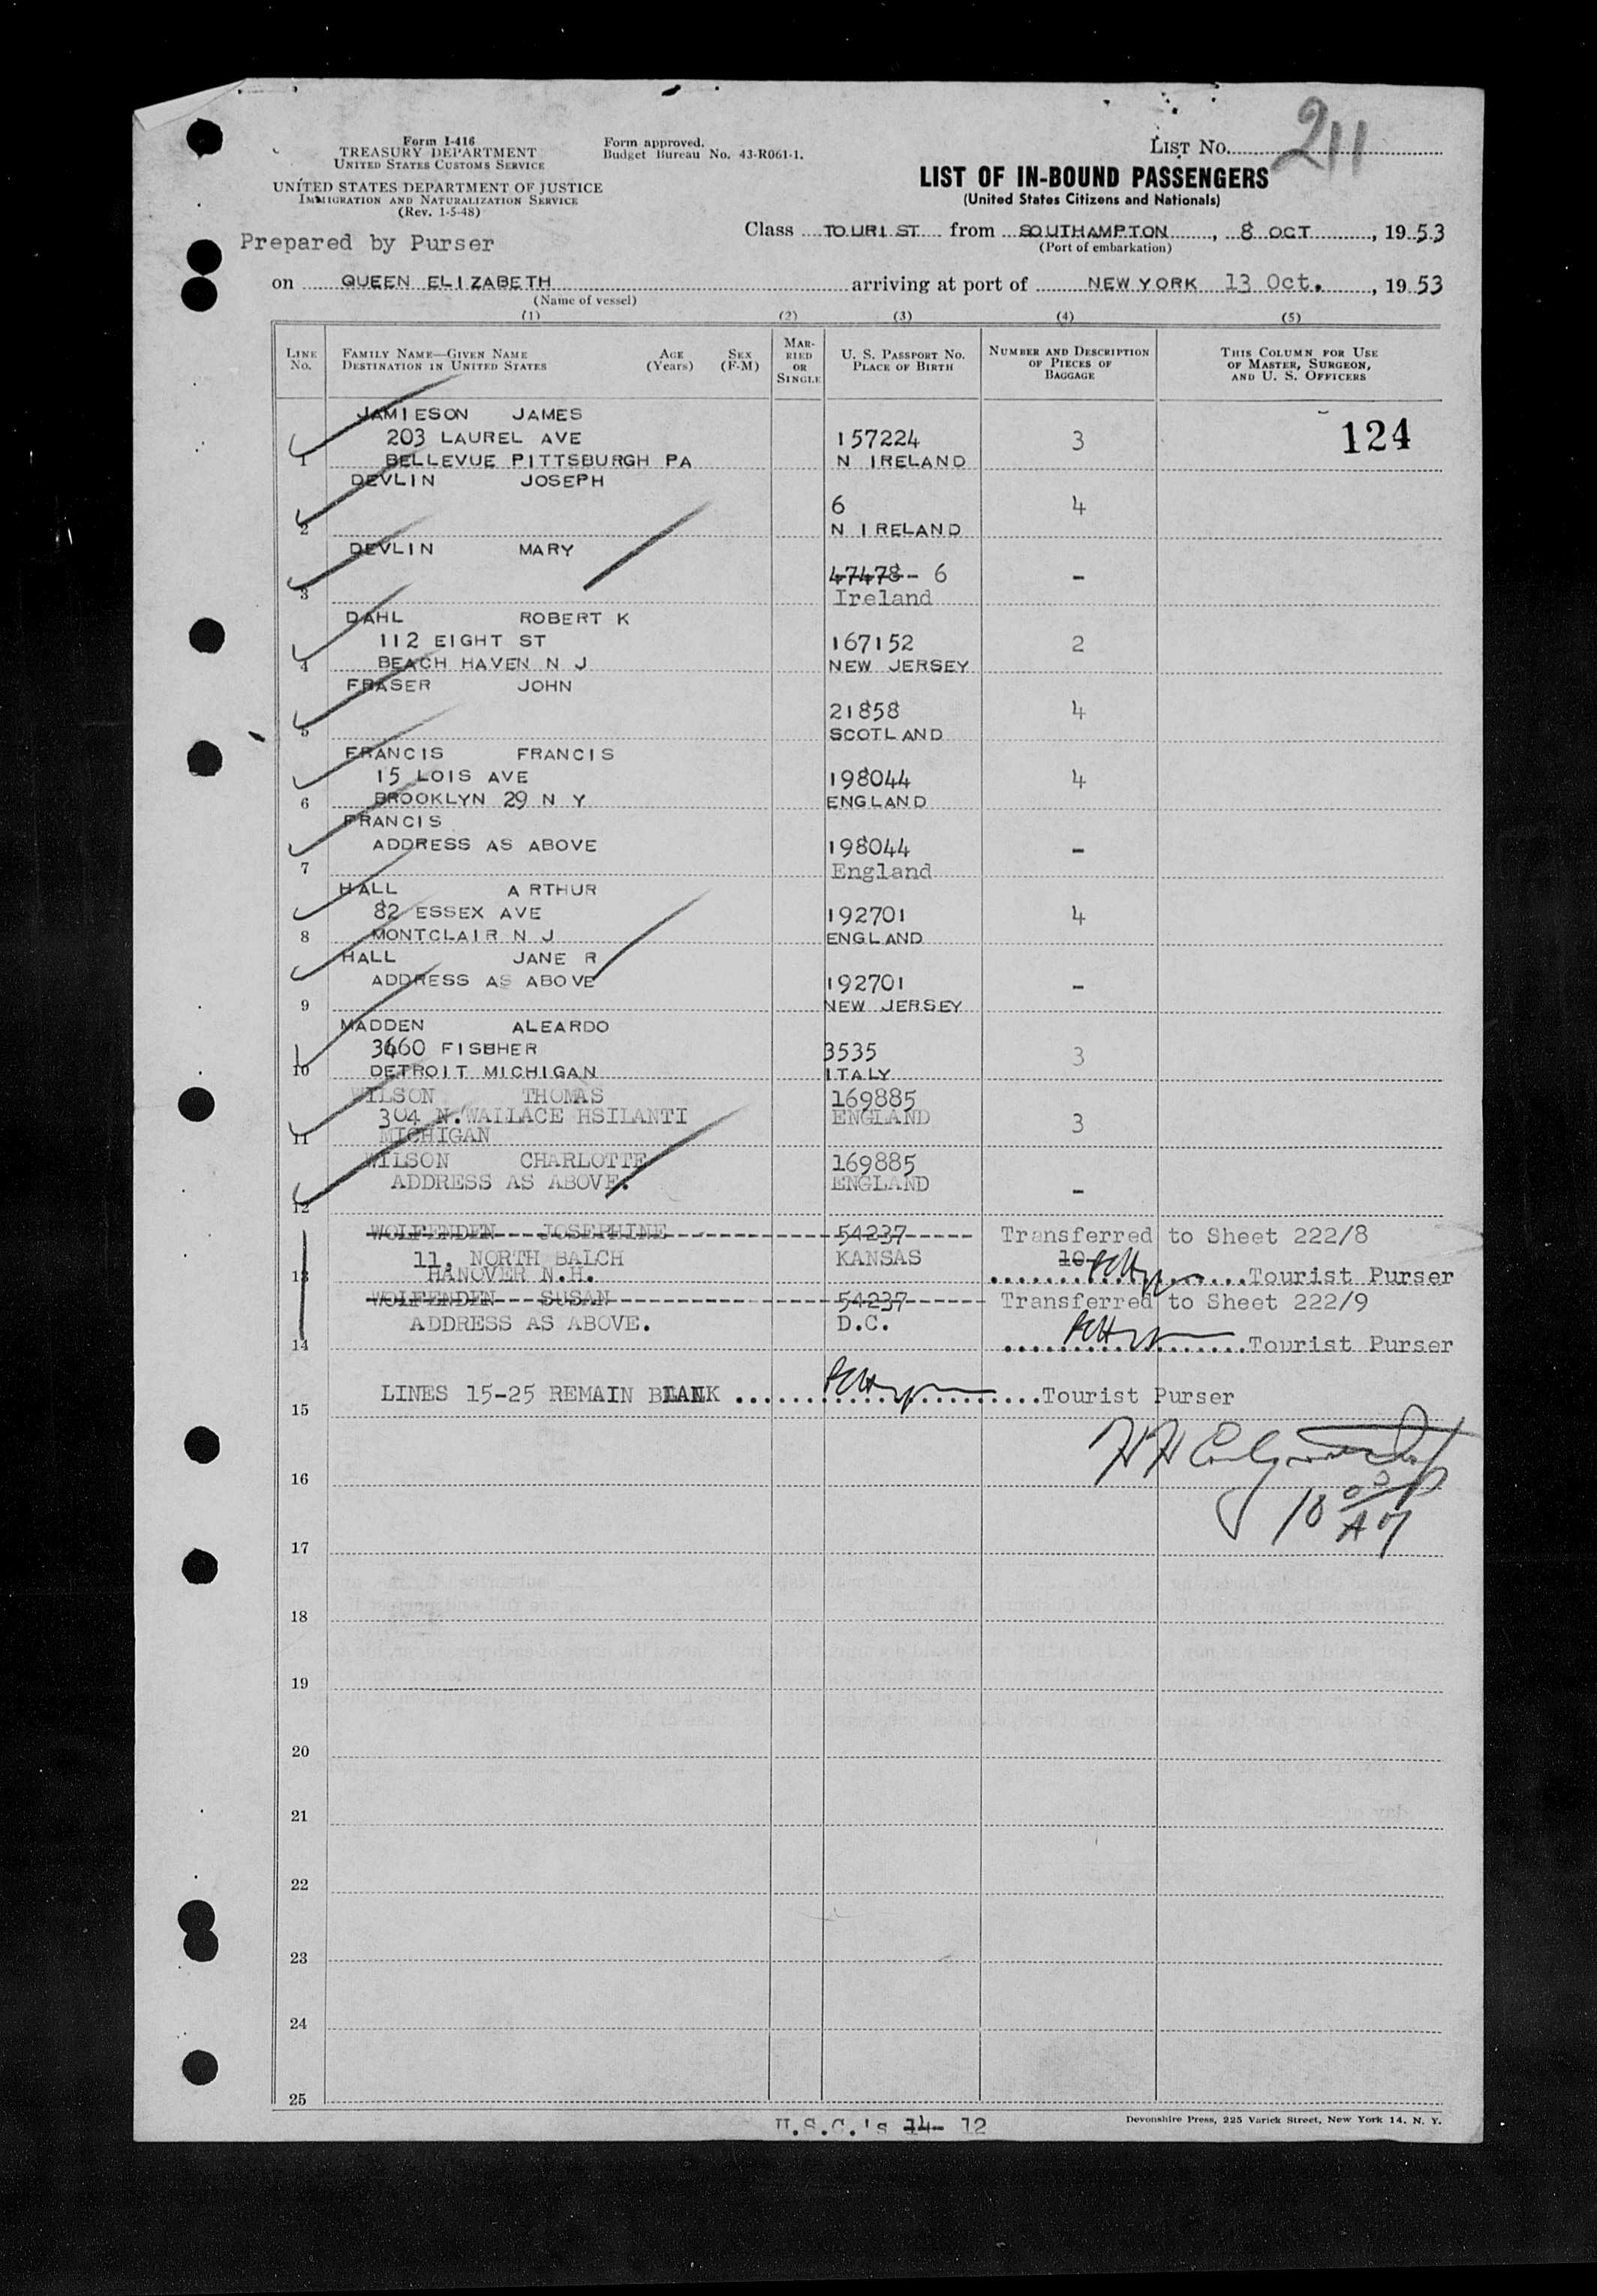 Form I-416
TREASURY DEPARTMENT
UNITED STATES CUSTOMS SERVICE
UNITED STATES DEPARTMENT OF JUSTICE
IMMIGRATION AND NATURALIZATION SERVICE
(Rev. 1-5-48)
Form approved.
Budget Bureau No. 43-R061-1.
LIST No. 211
LIST OF IN-BOUND PASSENGERS
(United States Citizens and Nationals)
Prepared by Purser
Class TOURIST from SOUTHAMPTON, 8 OCT, 1953
(Port of embarkation)
on QUEEN ELIZABETH arriving at port of NEW YORK 13 Oct., 1953
(Name of vessel)
(1) (2) (3) (4) (5)
LINE No.
FAMILY NAME—GIVEN NAME
DESTINATION IN UNITED STATES
AGE (Years)
SEX (F-M)
MARRIED OR SINGLE
U. S. PASSPORT NO.
PLACE OF BIRTH
NUMBER AND DESCRIPTION OF PIECES OF BAGGAGE
THIS COLUMN FOR USE OF MASTER, SURGEON, AND U. S. OFFICERS
JAMIESON JAMES
203 LAUREL AVE 157224 3 124
1 BELLEVUE PITTSBURGH PA N IRELAND
DEVLIN JOSEPH
6 4
2 N IRELAND
DEVLIN MARY
47478- 6 -
3 Ireland
DAHL ROBERT K
112 EIGHT ST 167152 2
4 BEACH HAVEN N J NEW JERSEY
FRASER JOHN
21858 4
5 SCOTLAND
FRANCIS FRANCIS
15 LOIS AVE 198044 4
6 BROOKLYN 29 N Y ENGLAND
FRANCIS
ADDRESS AS ABOVE 198044 -
7 England
HALL ARTHUR
82 ESSEX AVE 192701 4
8 MONTCLAIR N J ENGLAND
HALL JANE R
ADDRESS AS ABOVE 192701 -
9 NEW JERSEY
MADDEN ALEARDO
3660 FISHER 3535 3
10 DETROIT MICHIGAN ITALY
WILSON THOMAS 169885
304 N. WALLACE HSILANTI ENGLAND 3
11 MICHIGAN
WILSON CHARLOTTE 169885
ADDRESS AS ABOVE. ENGLAND -
12
WOLFENDEN JOSEPHINE 54237 Transferred to Sheet 222/8
11, NORTH BALCH KANSAS 10
13 HANOVER N.H. Tourist Purser
WOLFENDEN SUSAN 54237 Transferred to Sheet 222/9
ADDRESS AS ABOVE. D.C.
14 Tourist Purser
LINES 15-25 REMAIN BLANK Tourist Purser
15
16
17
18
19
20
21
22
23
24
25
U.S.C.'s 14 12
Devonshire Press, 225 Varick Street, New York 14, N. Y.